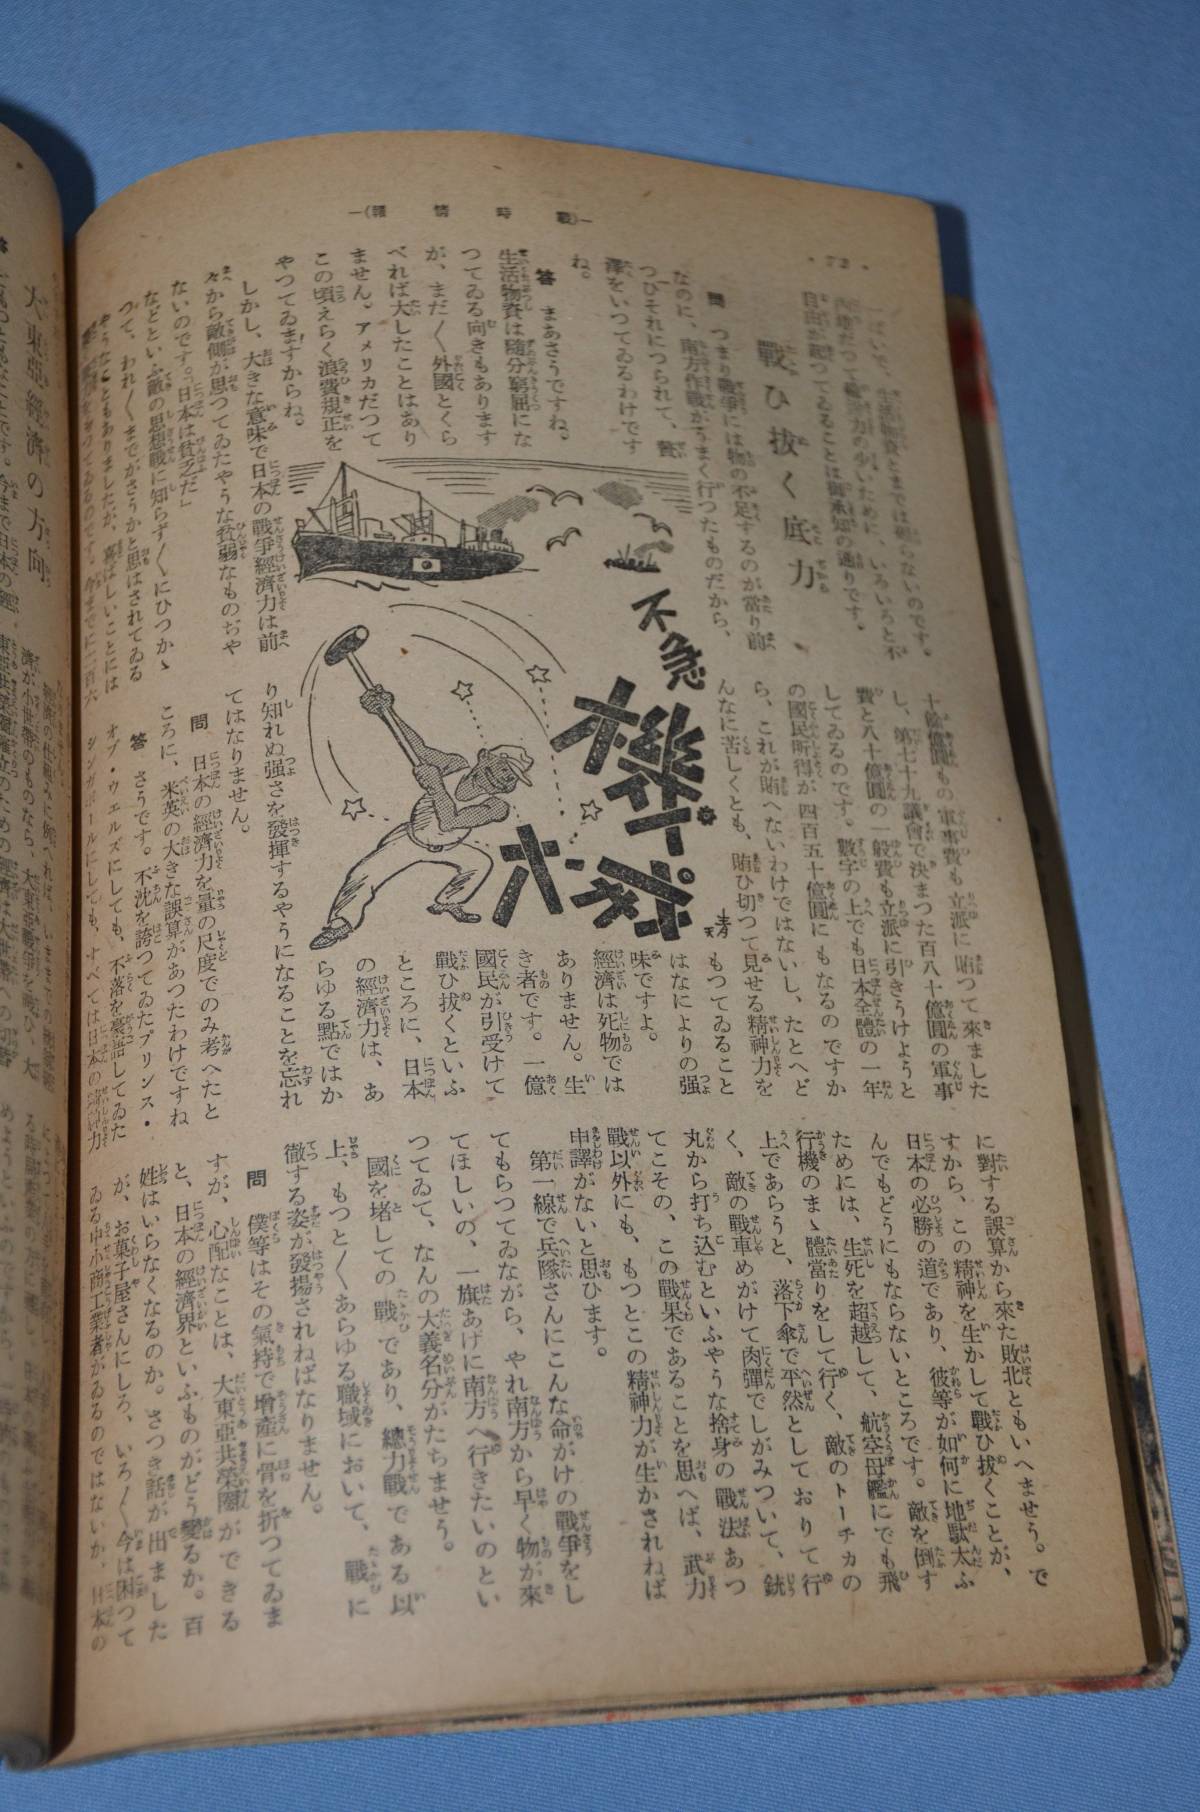 —(戰時情報)—
・72・
戰ひ抜く底力
自由が起つてゐることは御承知の通りです。
問 つまり戰爭には物の不足するのが當り前
なのに、南方作戰がうまく行つたものだから、
つひそれにつられて、贅
澤をいつてゐるわけです
ね。
答 まあさうですね。
生活物資は隨分窮屈にな
つてゐる向きもあります
が、まだ〱外國とくら
べれば大したことはあり
ません。アメリカだつて
この頃えらく浪費規正を
やつてゐますからね。
しかし、大きな意味で日本の戰爭經濟力は前
々から敵側が思つてゐたやうな貧弱なものぢや
ないのです。「日本は貧乏だ」
などといふ敵の思想戰に知らず〱にひつかゝ
つて、われ〱までがさうかと思はされてゐる
やうなこともありましたが、喜ばしいことには
十億圓もの軍事費も立派に賄つて來ました
し、第七十九議會で決まつた百八十億圓の軍事
費と八十億圓の一般費も立派に引きうけようと
してゐるのです。數字の上でも日本全體の一年
の國民所得が四百五十億圓にもなるのですか
ら、これが賄へないわけではないし、たとへど
んなに苦しくとも、賄ひ切つて見せる精神力を
もつてゐること
はなによりの强
味ですよ。
經濟は死物では
ありません。生
き者です。一億
國民が引受けて
戰ひ抜くといふ
ところに、日本
の經濟力は、あ
らゆる點ではか
り知れぬ强さを發揮するやうになることを忘れ
てはなりません。
問 日本の經濟力を量の尺度でのみ考へたと
ころに、米英の大きな誤算があつたわけですね
答 さうです。不沈を誇つてゐたプリンス・
オブ・ウェルズにしても、不落を豪語してゐた
シンガポールにしても、すべては日本の精神力
不急
機械
に對する誤算から來た敗北ともいへませう。で
すから、この精神を生かして戰ひ抜くことが、
日本の必勝の道であり、彼等が如何に地駄太ふ
んでもどうにもならないところです。敵を倒す
ためには、生死を超越して、航空母艦にでも飛
行機のまゝ體當りをして行く、敵のトーチカの
上であらうと、落下傘で平然としており て行
く、敵の戰車めがけて肉彈でしがみついて、銃
丸から打ち込むといふやうな捨身の戰法あつ
てこその、この戰果であることを思へば、武力
戰以外にも、もつとこの精神力が生かされねば
申譯がないと思ひます。
第一線で兵隊さんにこんな命がけの戰爭をし
てもらつてゐながら、やれ南方から早く物が來
てほしいの、一旗あげに南方へ行きたいのとい
つてゐて、なんの大義名分がたちませう。
國を堵しての戰であり、總力戰である以
上、もつと〱あらゆる職域において、戰に
徹する姿が發揚されねばなりません。
問 僕等はその氣持で增産に骨を折つてゐま
すが、心配なことは、大東亞共榮圈ができる
と、日本の經濟界といふものがどう變るか。百
姓はいらなくなるのか。さつき話が出ました
が、お菓子屋さんにしろ、いろ〱今は困つて
ゐる中小商工業者がゐるのではないか、日本の
大東亞經濟の方向